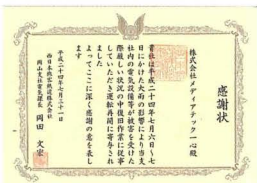 感謝状
株式会社メディアテック一心殿
貴社は平成二十四年七月六日、七
日にかけた大雨の影響により当支
社内の電気設備等が被害を受けた
際厳しい状況の中復旧作業に従事
していただき運転再開に寄与され
ました
よってここに深く感謝の意を表し
ます
平成二十四年七月三十一日
西日本旅客鉄道株式会社
岡山支社電気課長
岡田 文宏